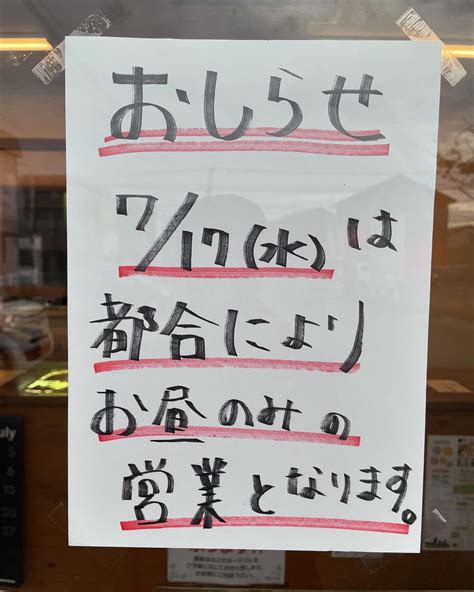 おしらせ
7/17(水)は
都合により
お昼のみの
営業となります。
July
S
6
13
20
27